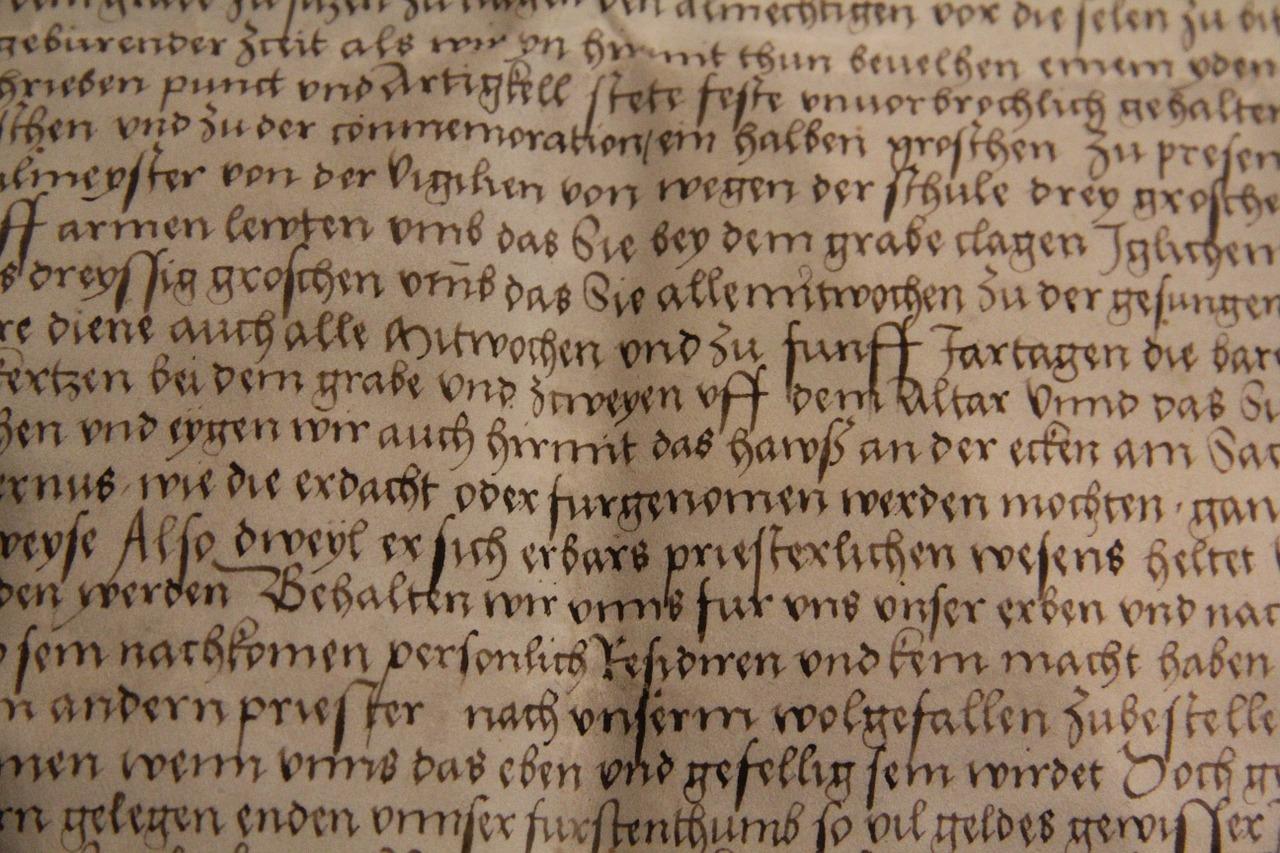 dem grabe zu sitzen zu tragen den almechtigen vor die selen zu bit
geburender Zceit als wir yn hirmit thun beuelhen einem yden
hrieben punct vnd Artigkell stete feste vnuorbrochlich gehalten
schen vnd zu der commemoration/ ein halben groschen Zu presen
ulmeyster von der Vigilien von wegen der schule drey grosche
ff armen lewten vmb das Sie bey dem grabe clagen Iglichem
s dreyssig groschen vmb das Sie alle mitwochen Zu der gesungen
re diene auch alle Mitwochen vnd Zu funff Jartagen die bar
kertzen bei dem grabe vnd Zcweyen vff dem Altar Vnnd das Si
hen vnd eygen wir auch hirmit das hawß an der ecken am Sac
ernus wie die erdacht oder furgenomen werden mochten · gan
weyse Also dweyl er sich erbars priesterlichen wesens heltet
den werden Behalten wir vnns fur vns vnser erben vnd nac
sein nachkomen personlich Residiren vnd kein macht haben
n andern priester nach vnserm wolgefallen Zubestelle
men wenn vnns das eben vnd gefellig sein wirdet Doch ge
rn gelegen enden vnnser furstenthumb so vil geldes gewisser